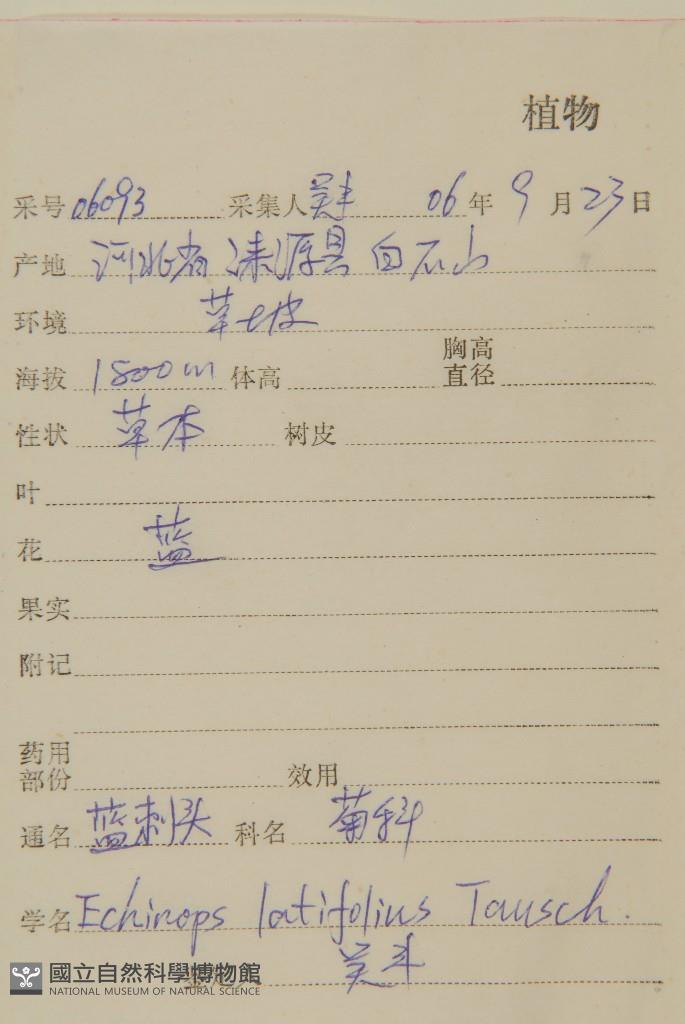 植物
采号 06093 采集人 吴丰 06 年 9 月 23 日
产地 河北省 涞源县 白石山
环境 草坡
海拔 1800m 体高 胸高直径
性状 草本 树皮
叶
花 蓝
果实
附记
药用部份 效用
通名 蓝刺头 科名 菊科
学名 Echinops latifolius Tausch.
國立自然科學博物館
NATIONAL MUSEUM OF NATURAL SCIENCE